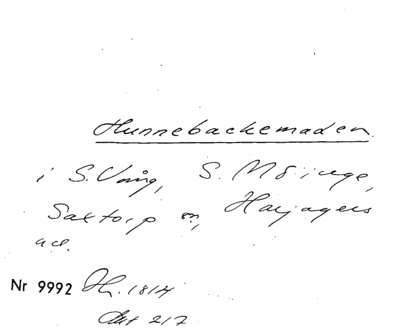 Hunnebackemaden.
i S. Vång, S. Möinge,
Saxtorp sn, Harjagers
hd.
Nr 9992 Lh. 1814
Akt 217